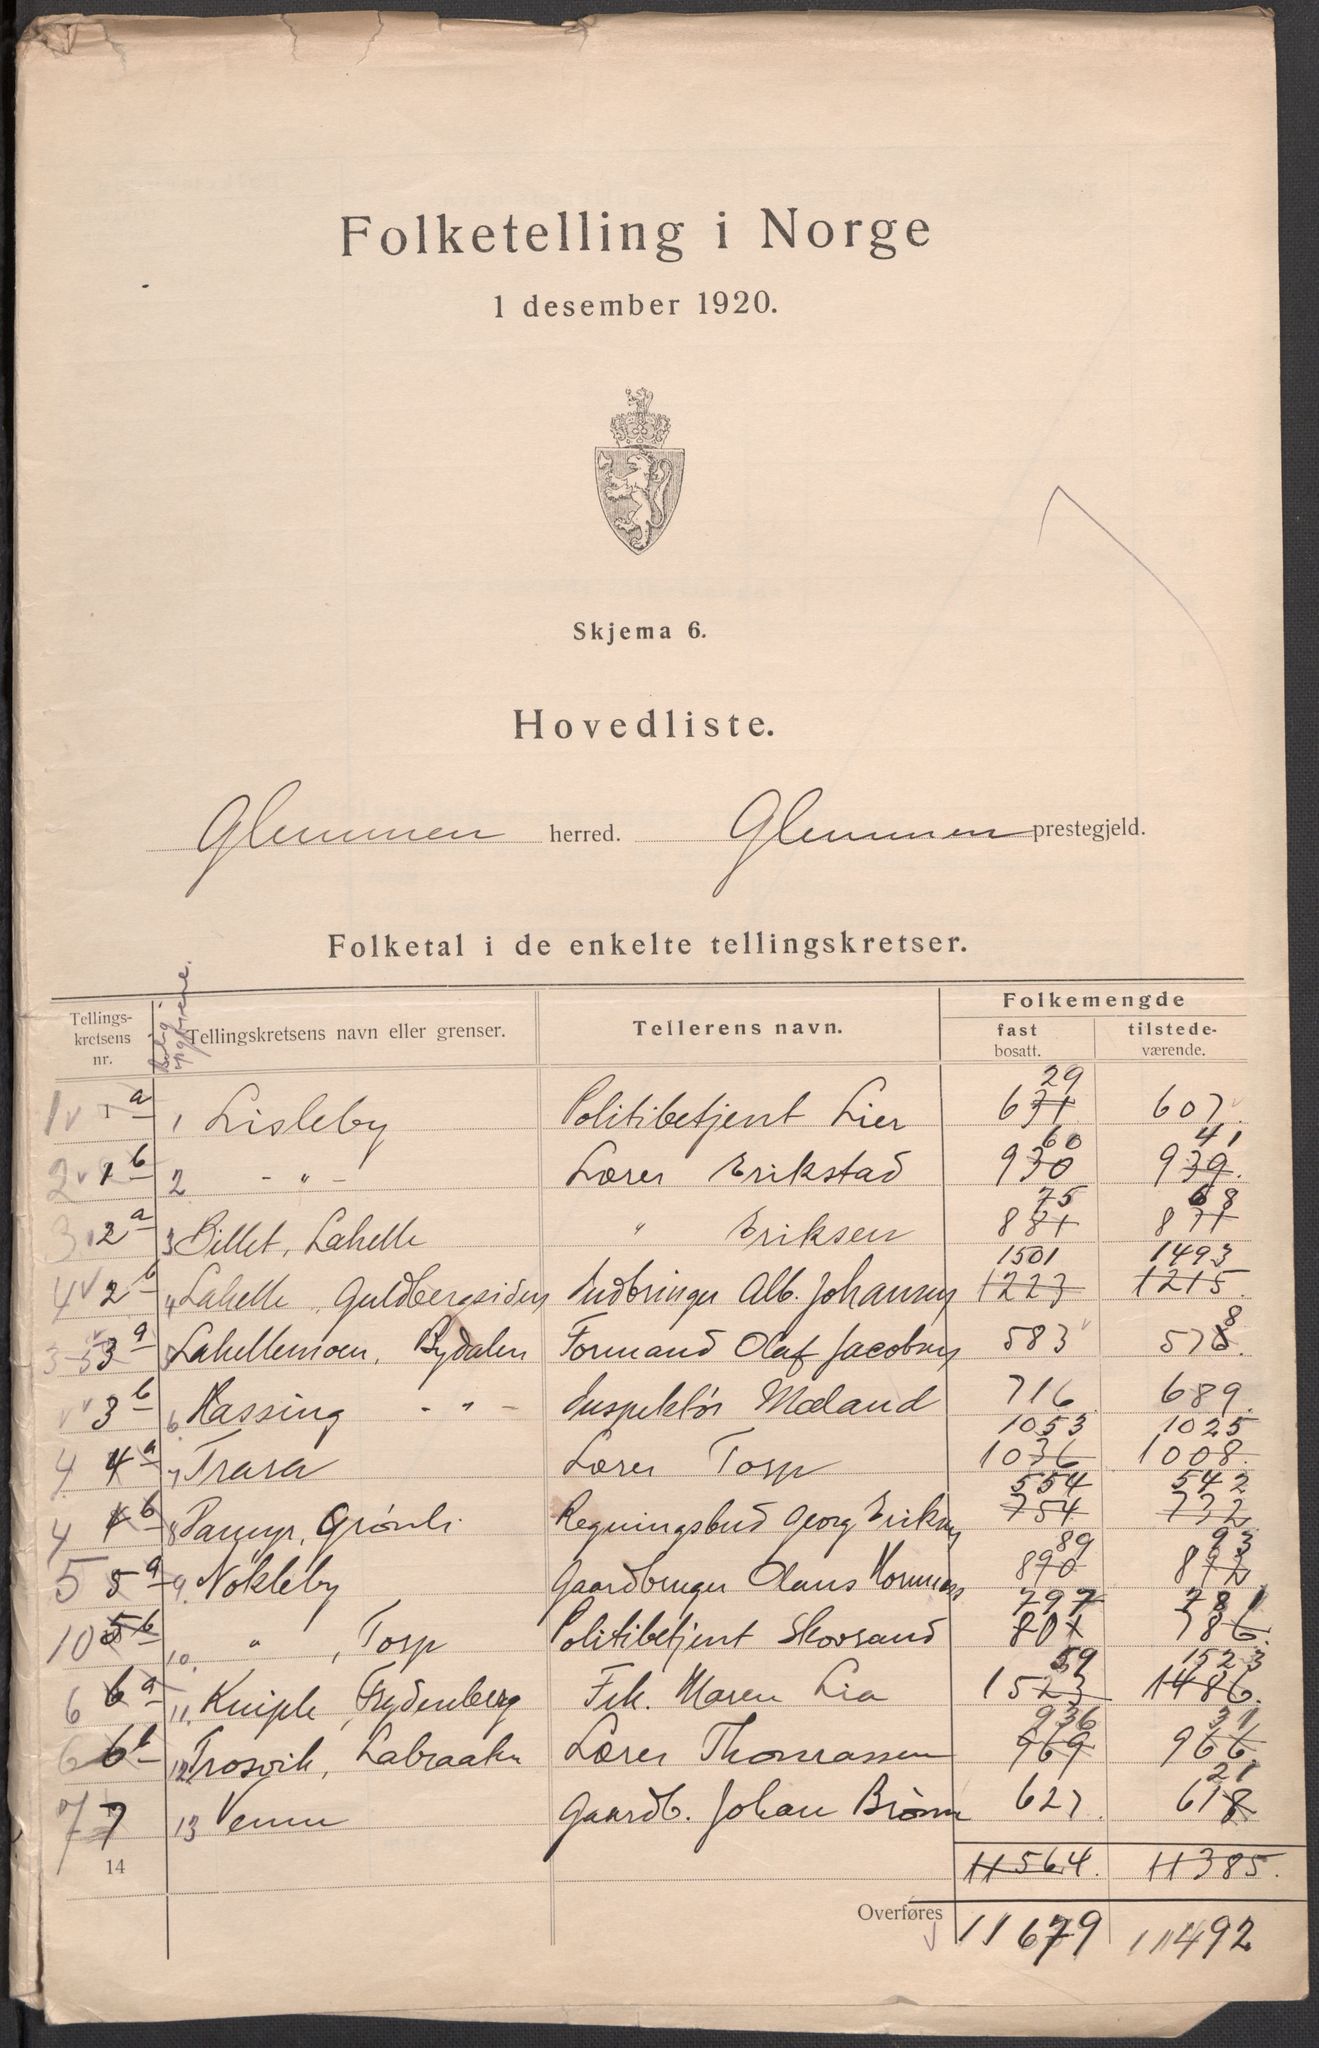 Folketelling i Norge
1 desember 1920.
Skjema 6.
Hovedliste.
Glemmen herred. Glemmen prestegjeld.
Folketal i de enkelte tellingskretser.
Tellings-kretsens nr. Tellingskretsens navn eller grenser. Tellerens navn. Folkemengde
fast bosatt. tilstede-værende.
29
1 1a 1 Lisleby Politibetjent Lier 631 607
60 41
2 1b 2 - " - Lærer Erikstad 930 939.
75 68
3 2a 3 Billet, Lahelle " Eriksen 881 871
1501 1493
4 2b 4 Lahelle, Guldbergsiden Indbringer Alb. Johansen 1223 1215.
8
3 3a 5 Lahellemoen, Bydalen Formand Olaf Jacobsen 583 576.
3b 6 Kassing - " - Inspektör Mæland 716 689
1053 1025
4 4a 7 Trara Lærer Torp 1036 1008.
554 542
4 4b 8 Grönli Regningsbud Georg Eriksen 754 732
89 93
5 5a 9. Nökleby Gaardbruger Olaus 890 892
797 781
10 5b 10. " , Torp Politibetjent Skovsand 801 786.
59 1523
6 6a 11. Kniple, Frydenberg Frk. Maren Lia 1523 1486.
936 31
6 6b 12 Trosvik, Labraaten Lærer Thomassen 969 966.
21
7 7 13 Gaardb. Johan 627 618
14 11564. 11385.
Overføres 11679 11492